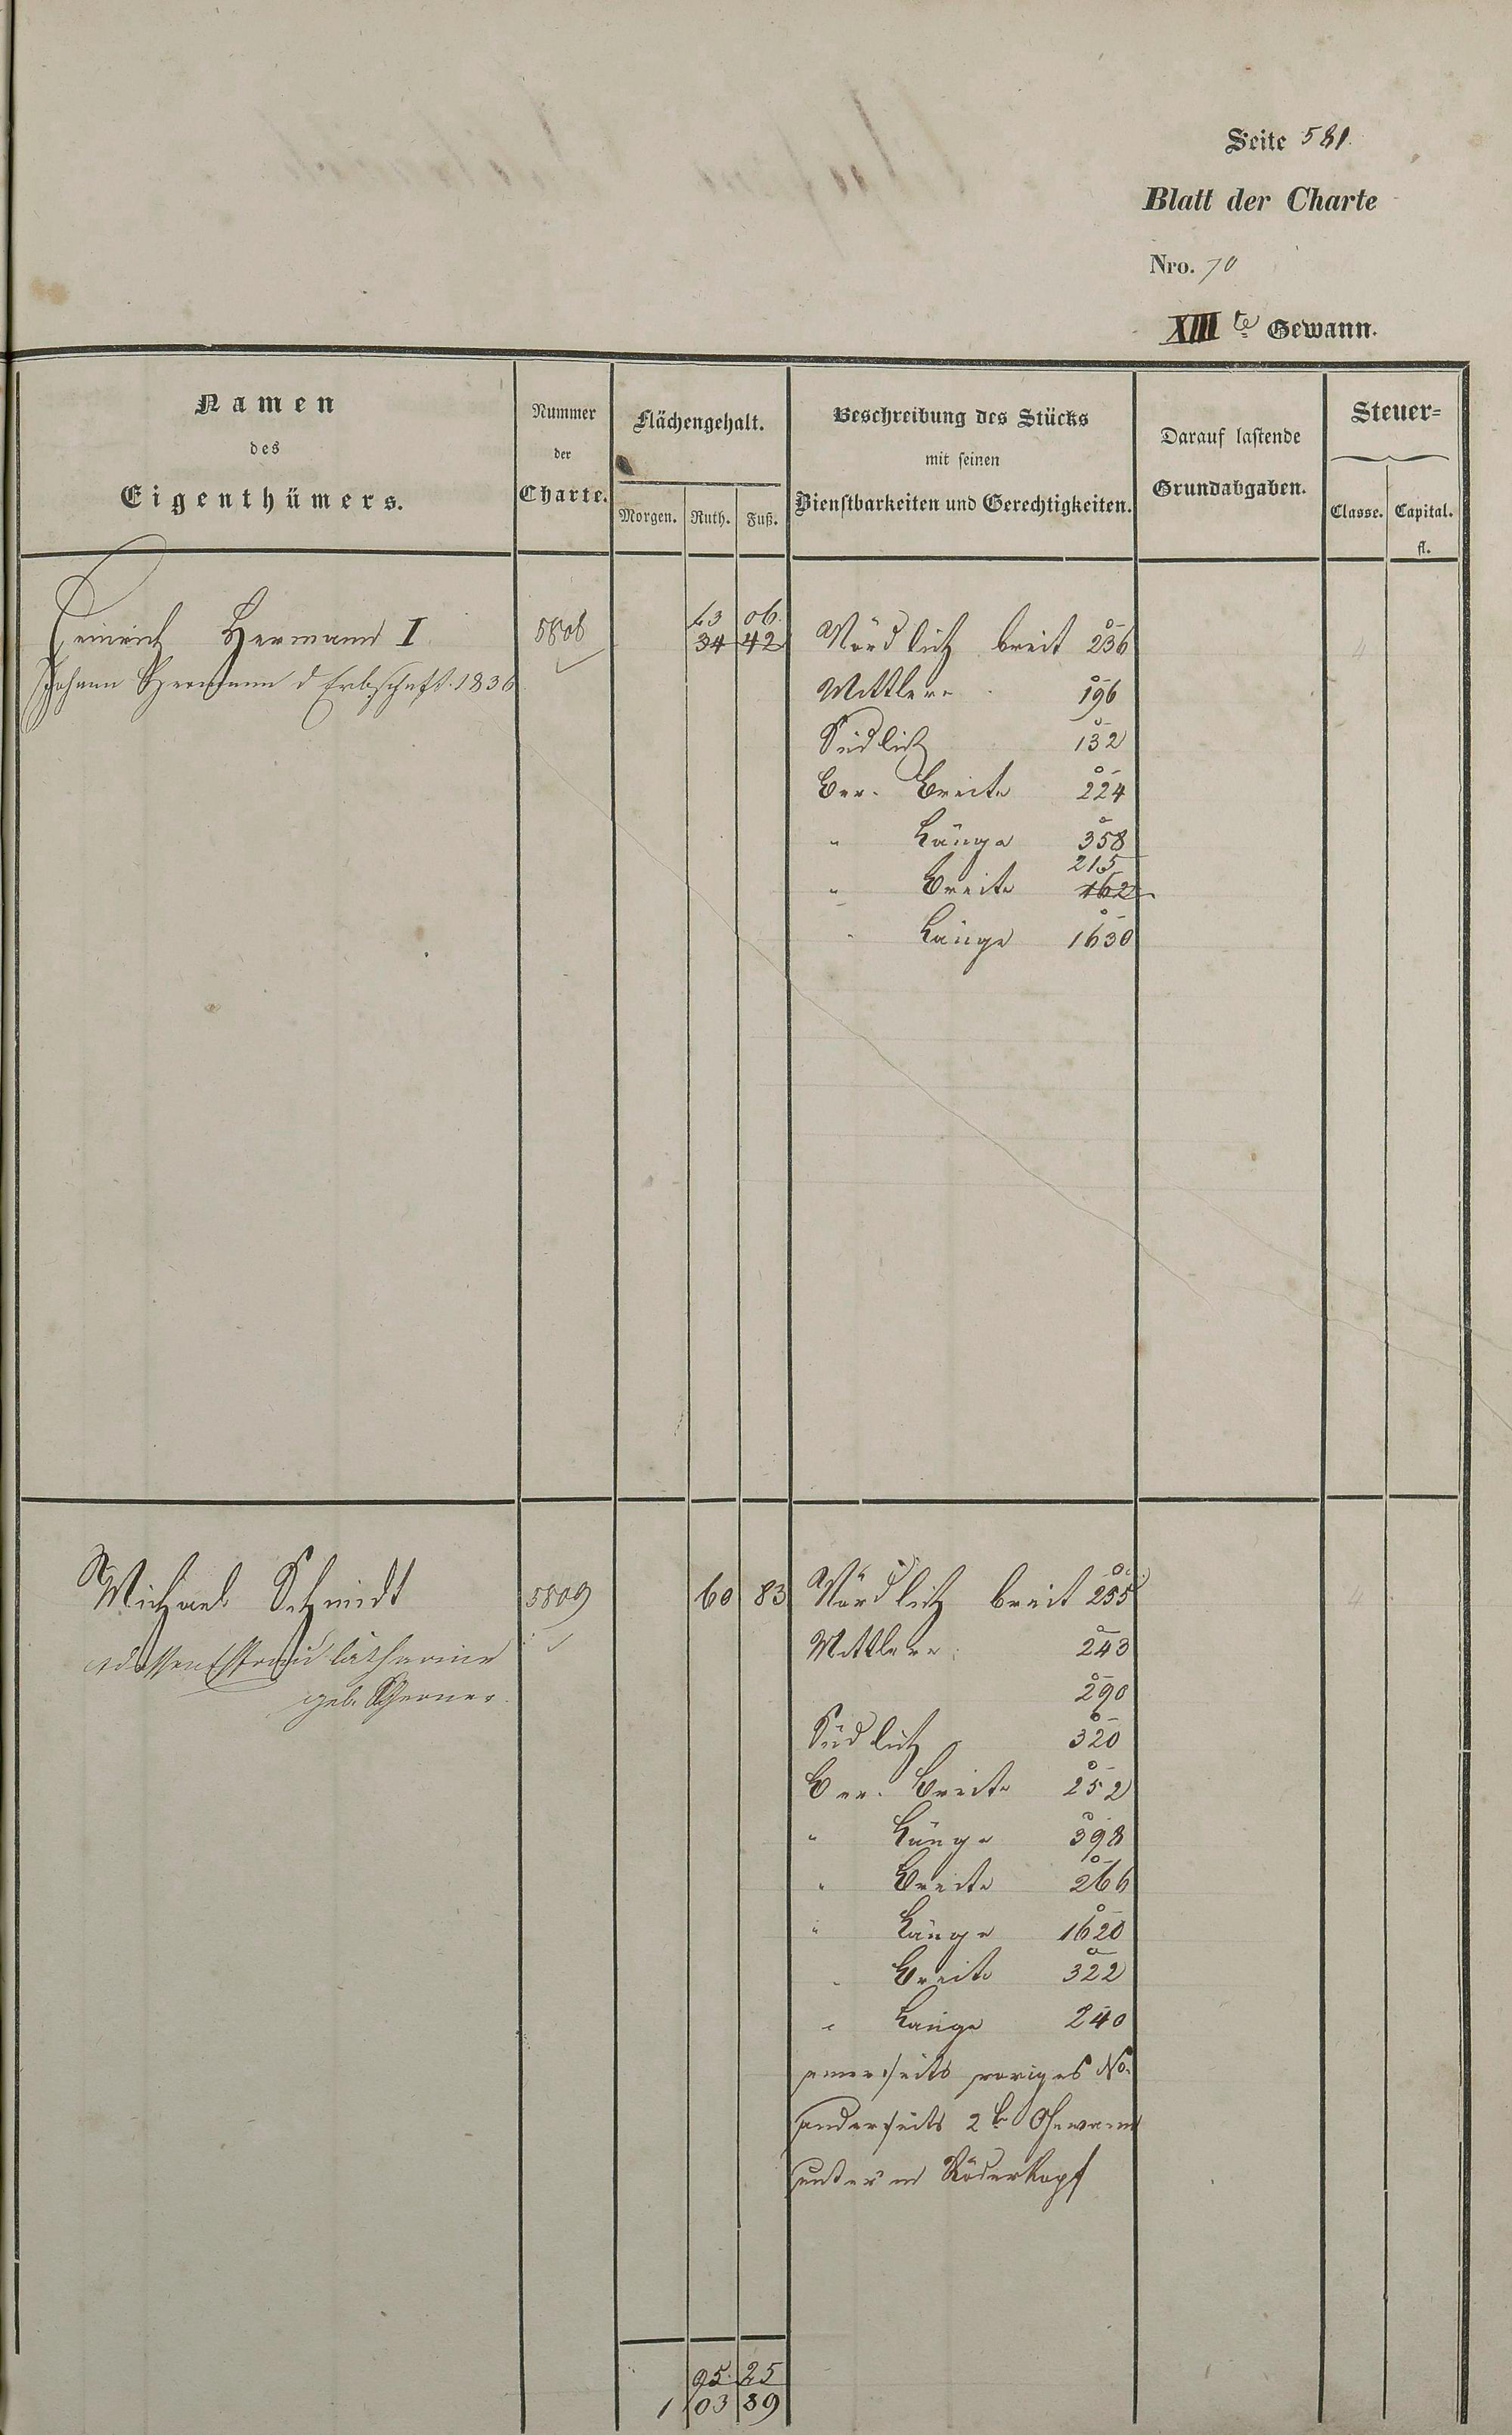 Seite 581.
Blatt der Charte
Nro. 70
XIII te Gewann.
Namen
des
Eigenthümers.
Nummer
der
Charte.
Flächengehalt.
Morgen. Ruth. Fuß.
Beschreibung des Stücks
mit seinen
Dienstbarkeiten und Gerechtigkeiten.
Darauf lastende
Grundabgaben.
Steuer=
Classe. Capital.
fl.
43 06
Heinrich Hermann I 5808 34 42 Nördlich breit 236
Johann Hermann d Erbschaft. 1836
Mittlere 196
Südlich 132
Ber. Breite 224
" Länge 358
215
" Breite 162
" Länge 1630
Michael Schmidt 5809 60 83 Nördlich breit 255
dessen Ehefrau Catharine
geb.
Mittlere 243
290
Südlich 320
Ber. Breite 252
" Länge 398
" Breite 266
" Länge 1620
" Breite 322
" Länge 240
einerseits voriges No.
anderseits 2te Gewann
unterm Röderkopf
95 25
1 03 89